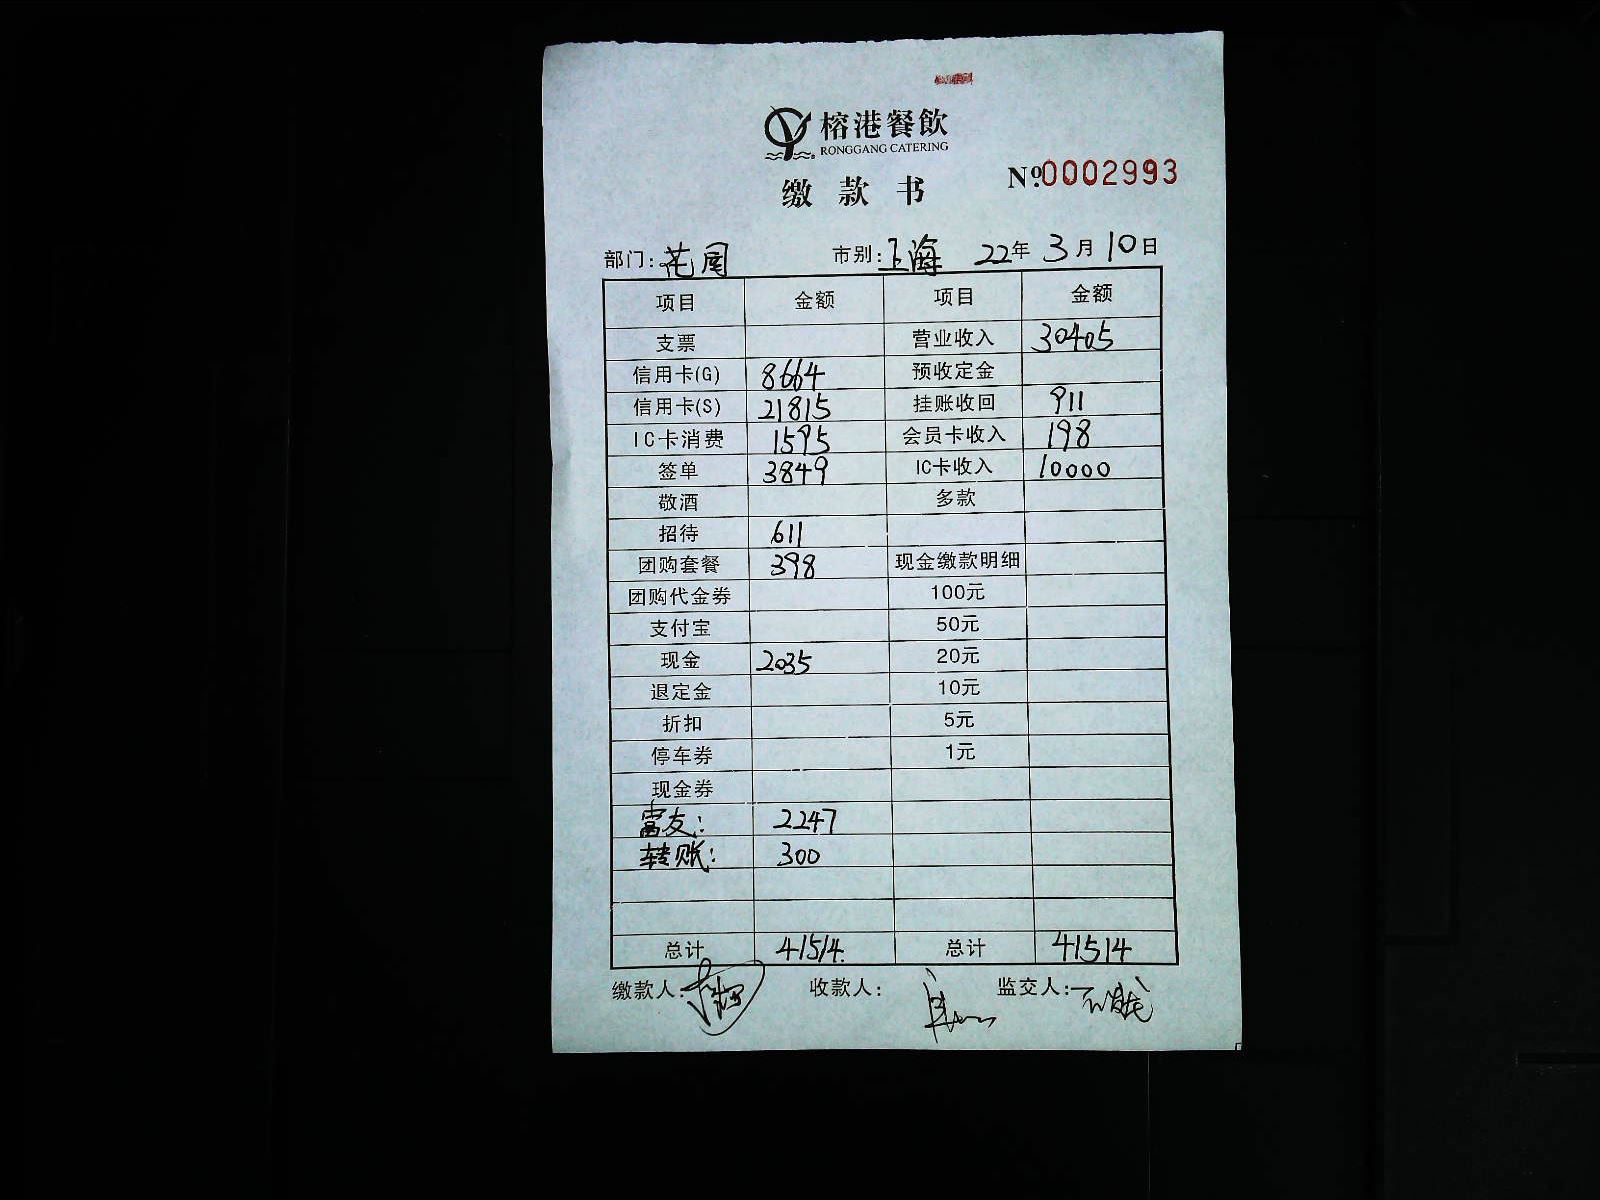 榕港餐飲
RONGGANG CATERING
缴款书
№0002993
部门:花园 市别:上海 22年3月10日
项目 金额 项目 金额
支票 营业收入 30405
信用卡(G) 8664 预收定金
信用卡(S) 21815 挂账收回 911
IC卡消费 1595 会员卡收入 198
签单 3849 IC卡收入 10000
敬酒 多款
招待 611
团购套餐 398 现金缴款明细
团购代金券 100元
支付宝 50元
现金 2035 20元
退定金 10元
折扣 5元
停车券 1元
现金券
富友: 2247
转账: 300
总计 41514. 总计 41514
缴款人: 收款人: 监交人: